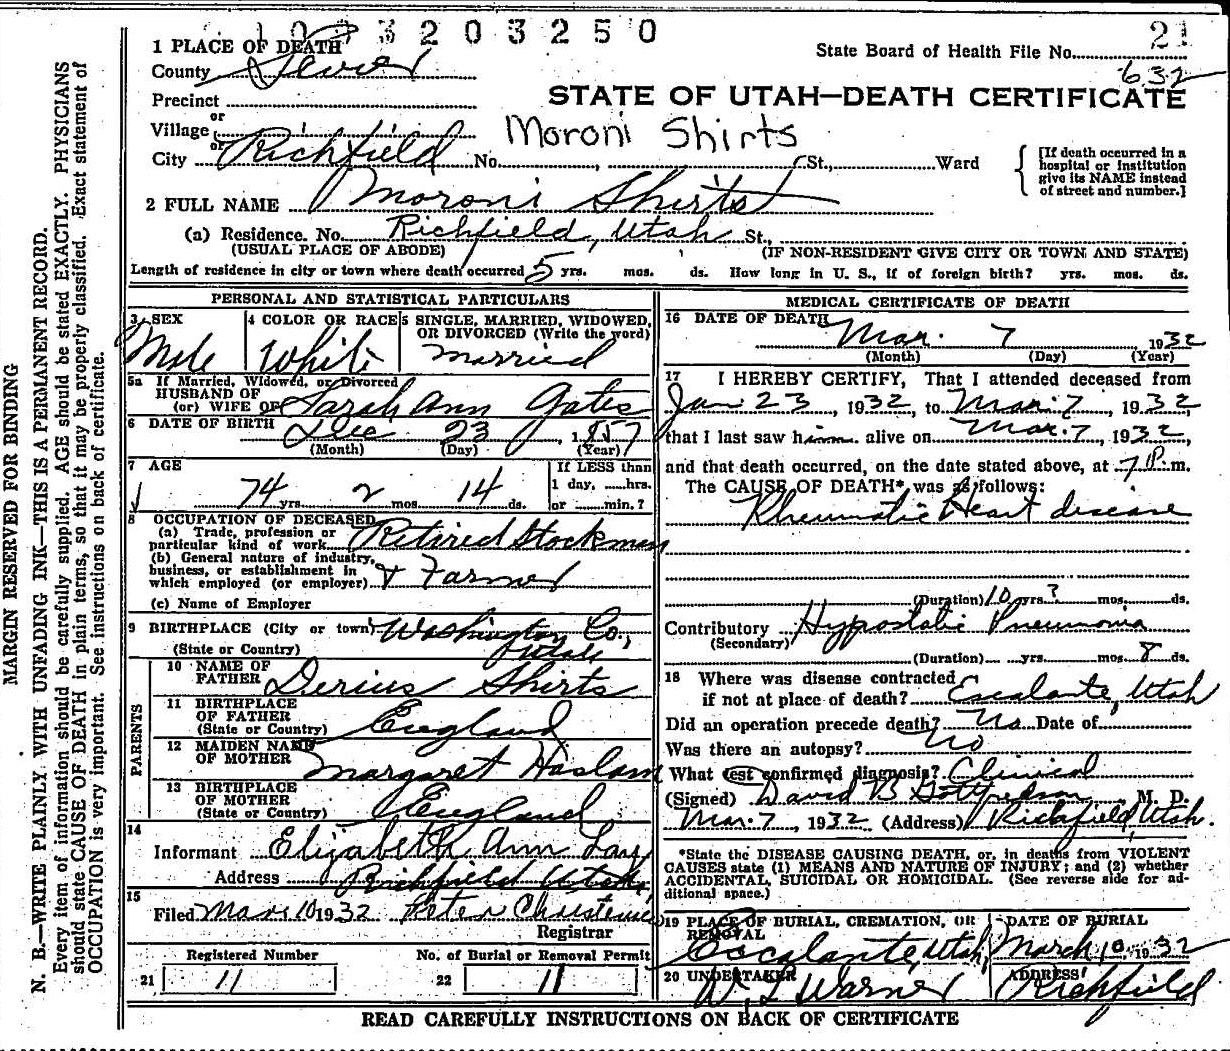 3203250
21
1 PLACE OF DEATH
State Board of Health File No.
County Sevier
632
Precinct
STATE OF UTAH—DEATH CERTIFICATE
or
Village
Moroni Shirts
or
City Richfield No. St., Ward
[If death occurred in a hospital or institution give its NAME instead of street and number.]
2 FULL NAME Moroni Shirts
(a) Residence. No. Richfield, Utah St.,
(USUAL PLACE OF ABODE) (IF NON-RESIDENT GIVE CITY OR TOWN AND STATE)
Length of residence in city or town where death occurred 5 yrs. mos. ds. How long in U. S., if of foreign birth? yrs. mos. ds.
PERSONAL AND STATISTICAL PARTICULARS
3 SEX
Male
4 COLOR OR RACE
White
5 SINGLE, MARRIED, WIDOWED, OR DIVORCED (Write the word)
Married
5a If Married, Widowed, or Divorced
HUSBAND OF
(or) WIFE OF Sarah Ann Gates
6 DATE OF BIRTH Dec 23, 1857
(Month) (Day) (Year)
7 AGE
74 yrs. 2 mos. 14 ds.
If LESS than
1 day, hrs.
or min.?
8 OCCUPATION OF DECEASED
(a) Trade, profession or
particular kind of work Retired Stockman
(b) General nature of industry,
business, or establishment in
which employed (or employer) & Farmer
(c) Name of Employer
9 BIRTHPLACE (City or town) Washington Co.,
(State or Country) Utah
PARENTS
10 NAME OF
FATHER Derius Shirts
11 BIRTHPLACE
OF FATHER
(State or Country) England
12 MAIDEN NAME
OF MOTHER Margaret Haslam
13 BIRTHPLACE
OF MOTHER
(State or Country) England
14
Informant Elizabeth Ann Lay
Address Richfield Utah
15
Filed Mar 10 1932 Peter Christensen
Registrar
Registered Number No. of Burial or Removal Permit
21 11 22 11
MEDICAL CERTIFICATE OF DEATH
16 DATE OF DEATH
Mar. 7 1932
(Month) (Day) (Year)
17 I HEREBY CERTIFY, That I attended deceased from
Jan 23, 1932, to Mar. 7, 1932,
that I last saw him alive on Mar. 7, 1932,
and that death occurred, on the date stated above, at 7 P. m.
The CAUSE OF DEATH* was as follows:
Rheumatic Heart disease
(Duration) 10 yrs.? mos. ds.
Contributory Hypostatic Pneumonia
(Secondary)
(Duration) yrs. mos. 8 ds.
18 Where was disease contracted
if not at place of death? Escalante, Utah
Did an operation precede death? No Date of
Was there an autopsy? No
What test confirmed diagnosis? Clinical
(Signed) David B Gottfredson M. D.
Mar. 7, 1932 (Address) Richfield, Utah.
*State the DISEASE CAUSING DEATH, or, in deaths from VIOLENT
CAUSES state (1) MEANS AND NATURE OF INJURY; and (2) whether
ACCIDENTAL, SUICIDAL OR HOMICIDAL. (See reverse side for ad-
ditional space.)
19 PLACE OF BURIAL, CREMATION, OR
REMOVAL
Escalante, Utah,
DATE OF BURIAL
March 10, 1932
20 UNDERTAKER
W. L Warner
ADDRESS
Richfield
READ CAREFULLY INSTRUCTIONS ON BACK OF CERTIFICATE
MARGIN RESERVED FOR BINDING
N. B.—WRITE PLAINLY, WITH UNFADING INK—THIS IS A PERMANENT RECORD.
Every item of information should be carefully supplied. AGE should be stated EXACTLY. PHYSICIANS
should state CAUSE OF DEATH in plain terms, so that it may be properly classified. Exact statement of
OCCUPATION is very important. See instructions on back of certificate.